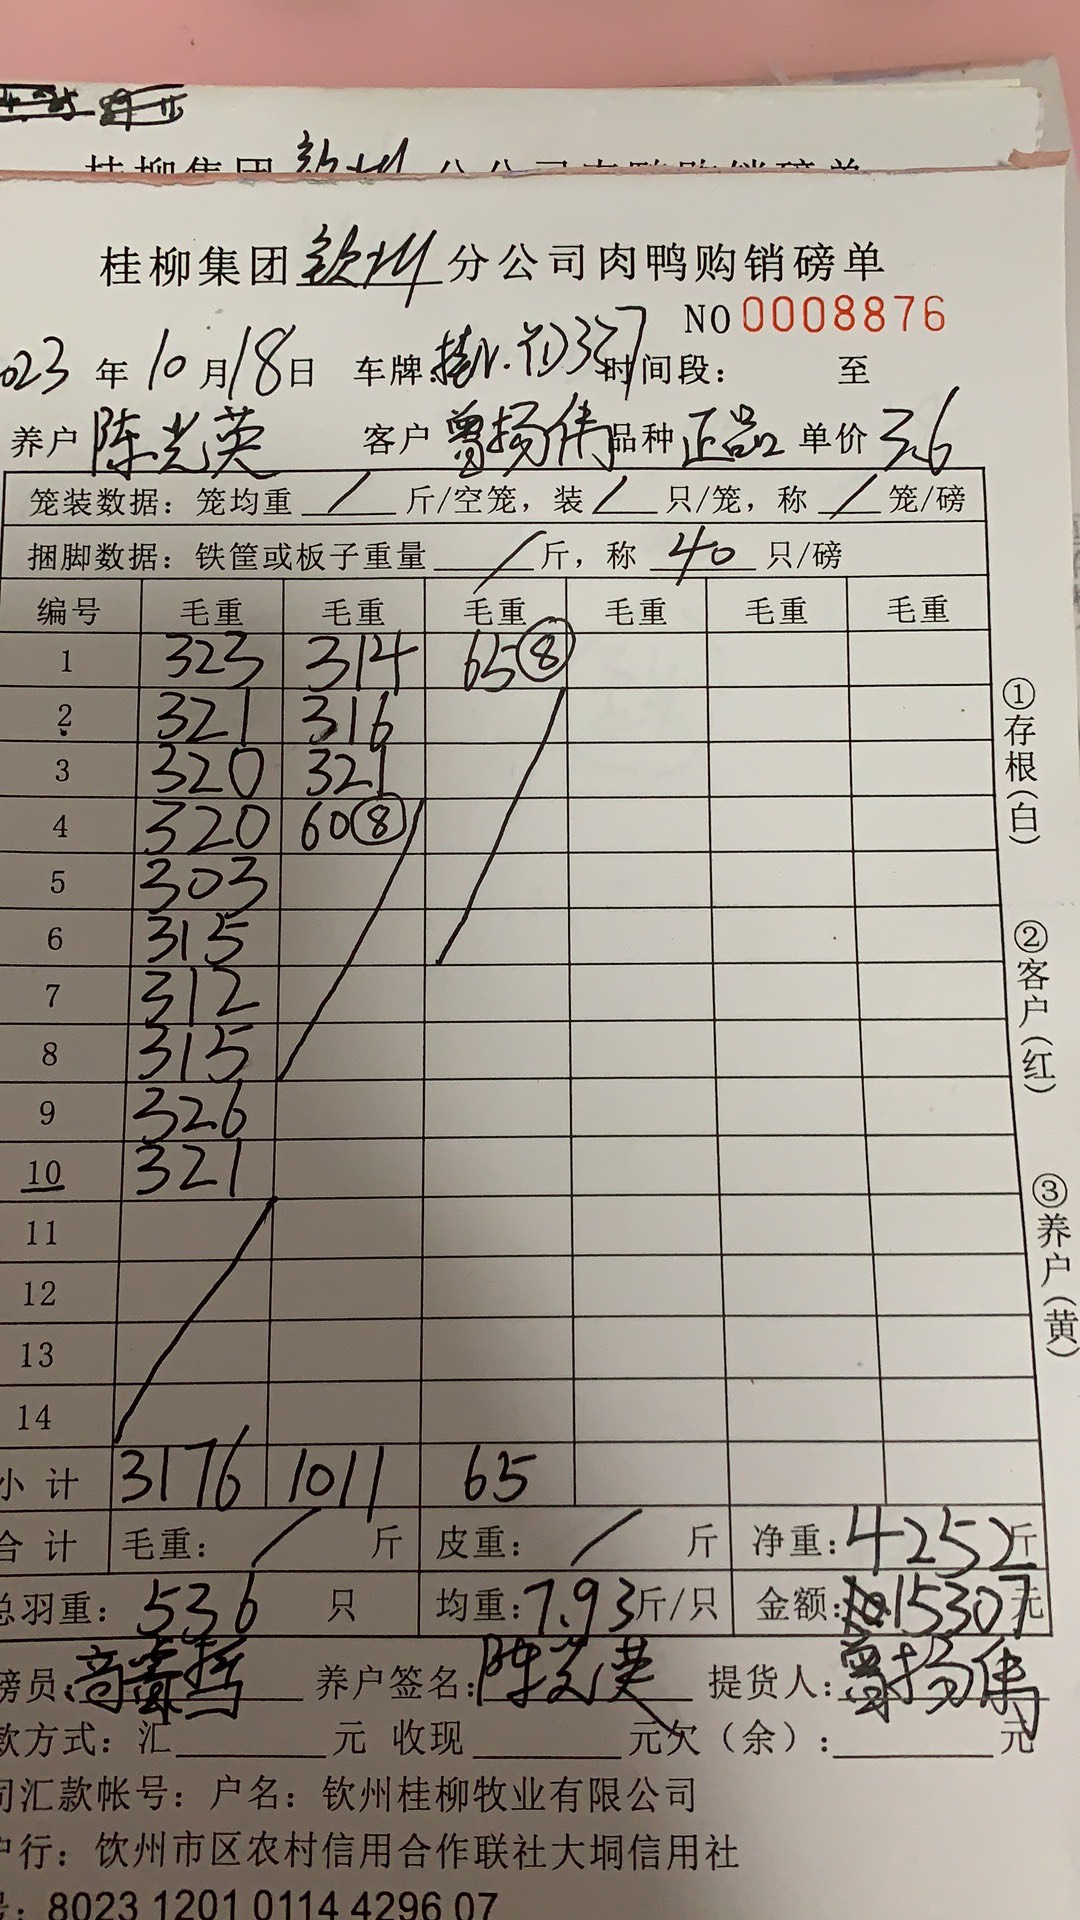 桂柳集团钦州分公司肉鸭购销磅单
桂柳集团钦州分公司肉鸭购销磅单
NO 0008876
023年10月18日 车牌: 时间段: 至
养户 陈光英 客户 曾扬伟 品种 正品 单价 3.6
笼装数据: 笼均重 / 斤/空笼, 装 / 只/笼, 称 / 笼/磅
捆脚数据: 铁筐或板子重量 / 斤, 称 40 只/磅
编号 毛重 毛重 毛重 毛重 毛重 毛重
1 323 314 65⑧
2 321 316
3 320 321
4 320 60⑧
5 303
6 315
7 312
8 315
9 326
10 321
11
12
13
14
小计 3176 1011 65
合计 毛重: / 斤 皮重: / 斤 净重: 4252斤
总羽重: 536 只 均重: 7.93斤/只 金额: 15307元
磅员: 养户签名: 陈光英 提货人: 曾扬伟
款方式: 汇 元 收现 元欠(余): 元
司汇款帐号: 户名: 钦州桂柳牧业有限公司
户行: 钦州市区农村信用合作联社大垌信用社
号: 8023 1201 0114 4296 07
①存根(白)
②客户(红)
③养户(黄)